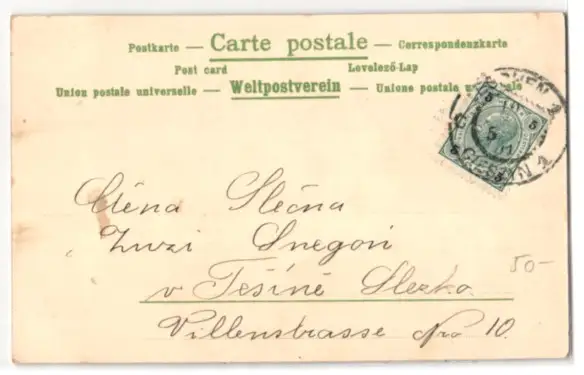 Postkarte — Carte postale — Correspondenzkarte
Post card Levelező-Lap
Union postale universelle — Weltpostverein — Unione postale
5 5
Ctěná Slečna
Zuzi Snegoń
v Těšíně Slezko
Villenstrasse Nro 10.
50-